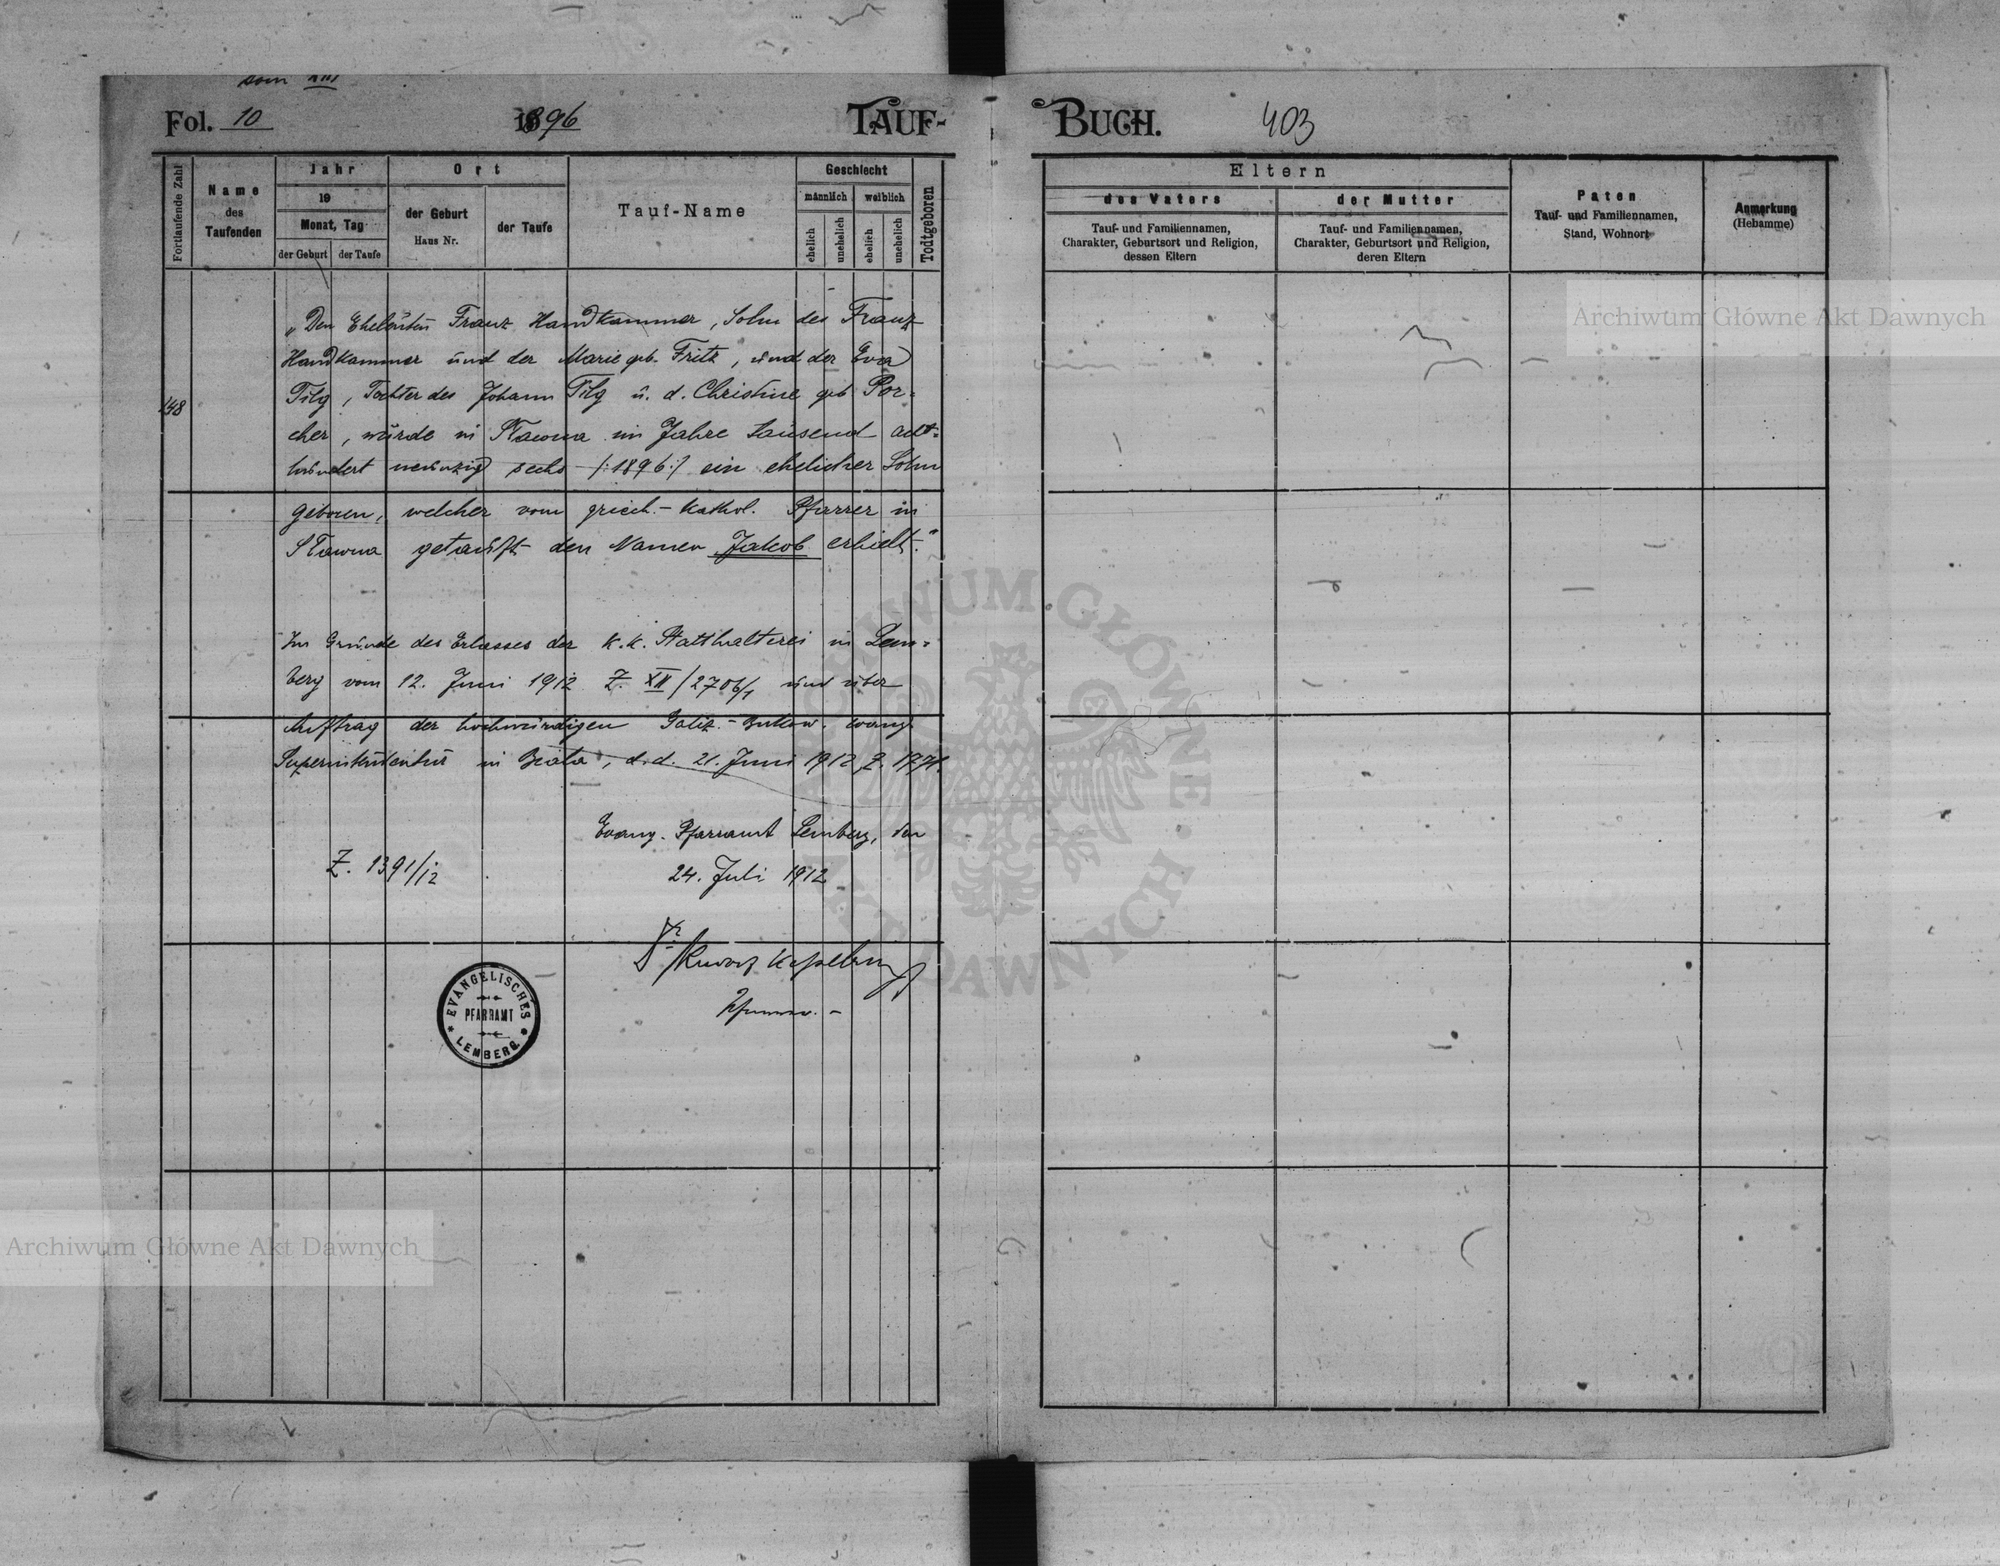 Tom XIII
Fol. 10
1896
TAUF-
BUCH.
403
Fortlaufende Zahl
Name
des
Taufenden
Jahr
19
Monat, Tag
der Geburt
der Taufe
Ort
der Geburt
Haus Nr.
der Taufe
Tauf-Name
Geschlecht
männlich
weiblich
ehelich
unehelich
ehelich
unehelich
Todtgeboren
Eltern
des Vaters
Tauf- und Familiennamen,
Charakter, Geburtsort und Religion,
dessen Eltern
der Mutter
Tauf- und Familiennamen,
Charakter, Geburtsort und Religion,
deren Eltern
Paten
Tauf- und Familiennamen,
Stand, Wohnort
Anmerkung
(Hebamme)
148
„Den Eheleuten Franz Handkammer, Sohn des Franz
Handkammer und der Marie geb. Fritz, und der Eva
Tilg, Tochter des Johann Tilg u. d. Christine geb Por-
cher, wurde in Sławna im Jahre tausend acht-
hundert neunzig sechs /:1896:/ ein ehelicher Sohn
geboren, welcher vom griech.-kathol. Pfarrer in
Sławna getauft den Namen Jakob erhielt."
Im Grunde des Erlasses der k.k. Statthalterei in Lem-
berg vom 12. Juni 1912 Z. XII/2706/1 und über
Auftrag der hochwürdigen Galiz.-Bukow. evang.
Superintendentur in Biała, d.d. 21. Juni 1912 Z. 1774.
Evang. Pfarramt Lemberg, den
Z. 1391/12
24. Juli 1912
Dr Rudolf Kesselring
Pfarrer.-
EVANGELISCHES
PFARRAMT
LEMBERG
Archiwum Główne Akt Dawnych
ARCHIWUM GŁÓWNE AKT DAWNYCH
Archiwum Główne Akt Dawnych